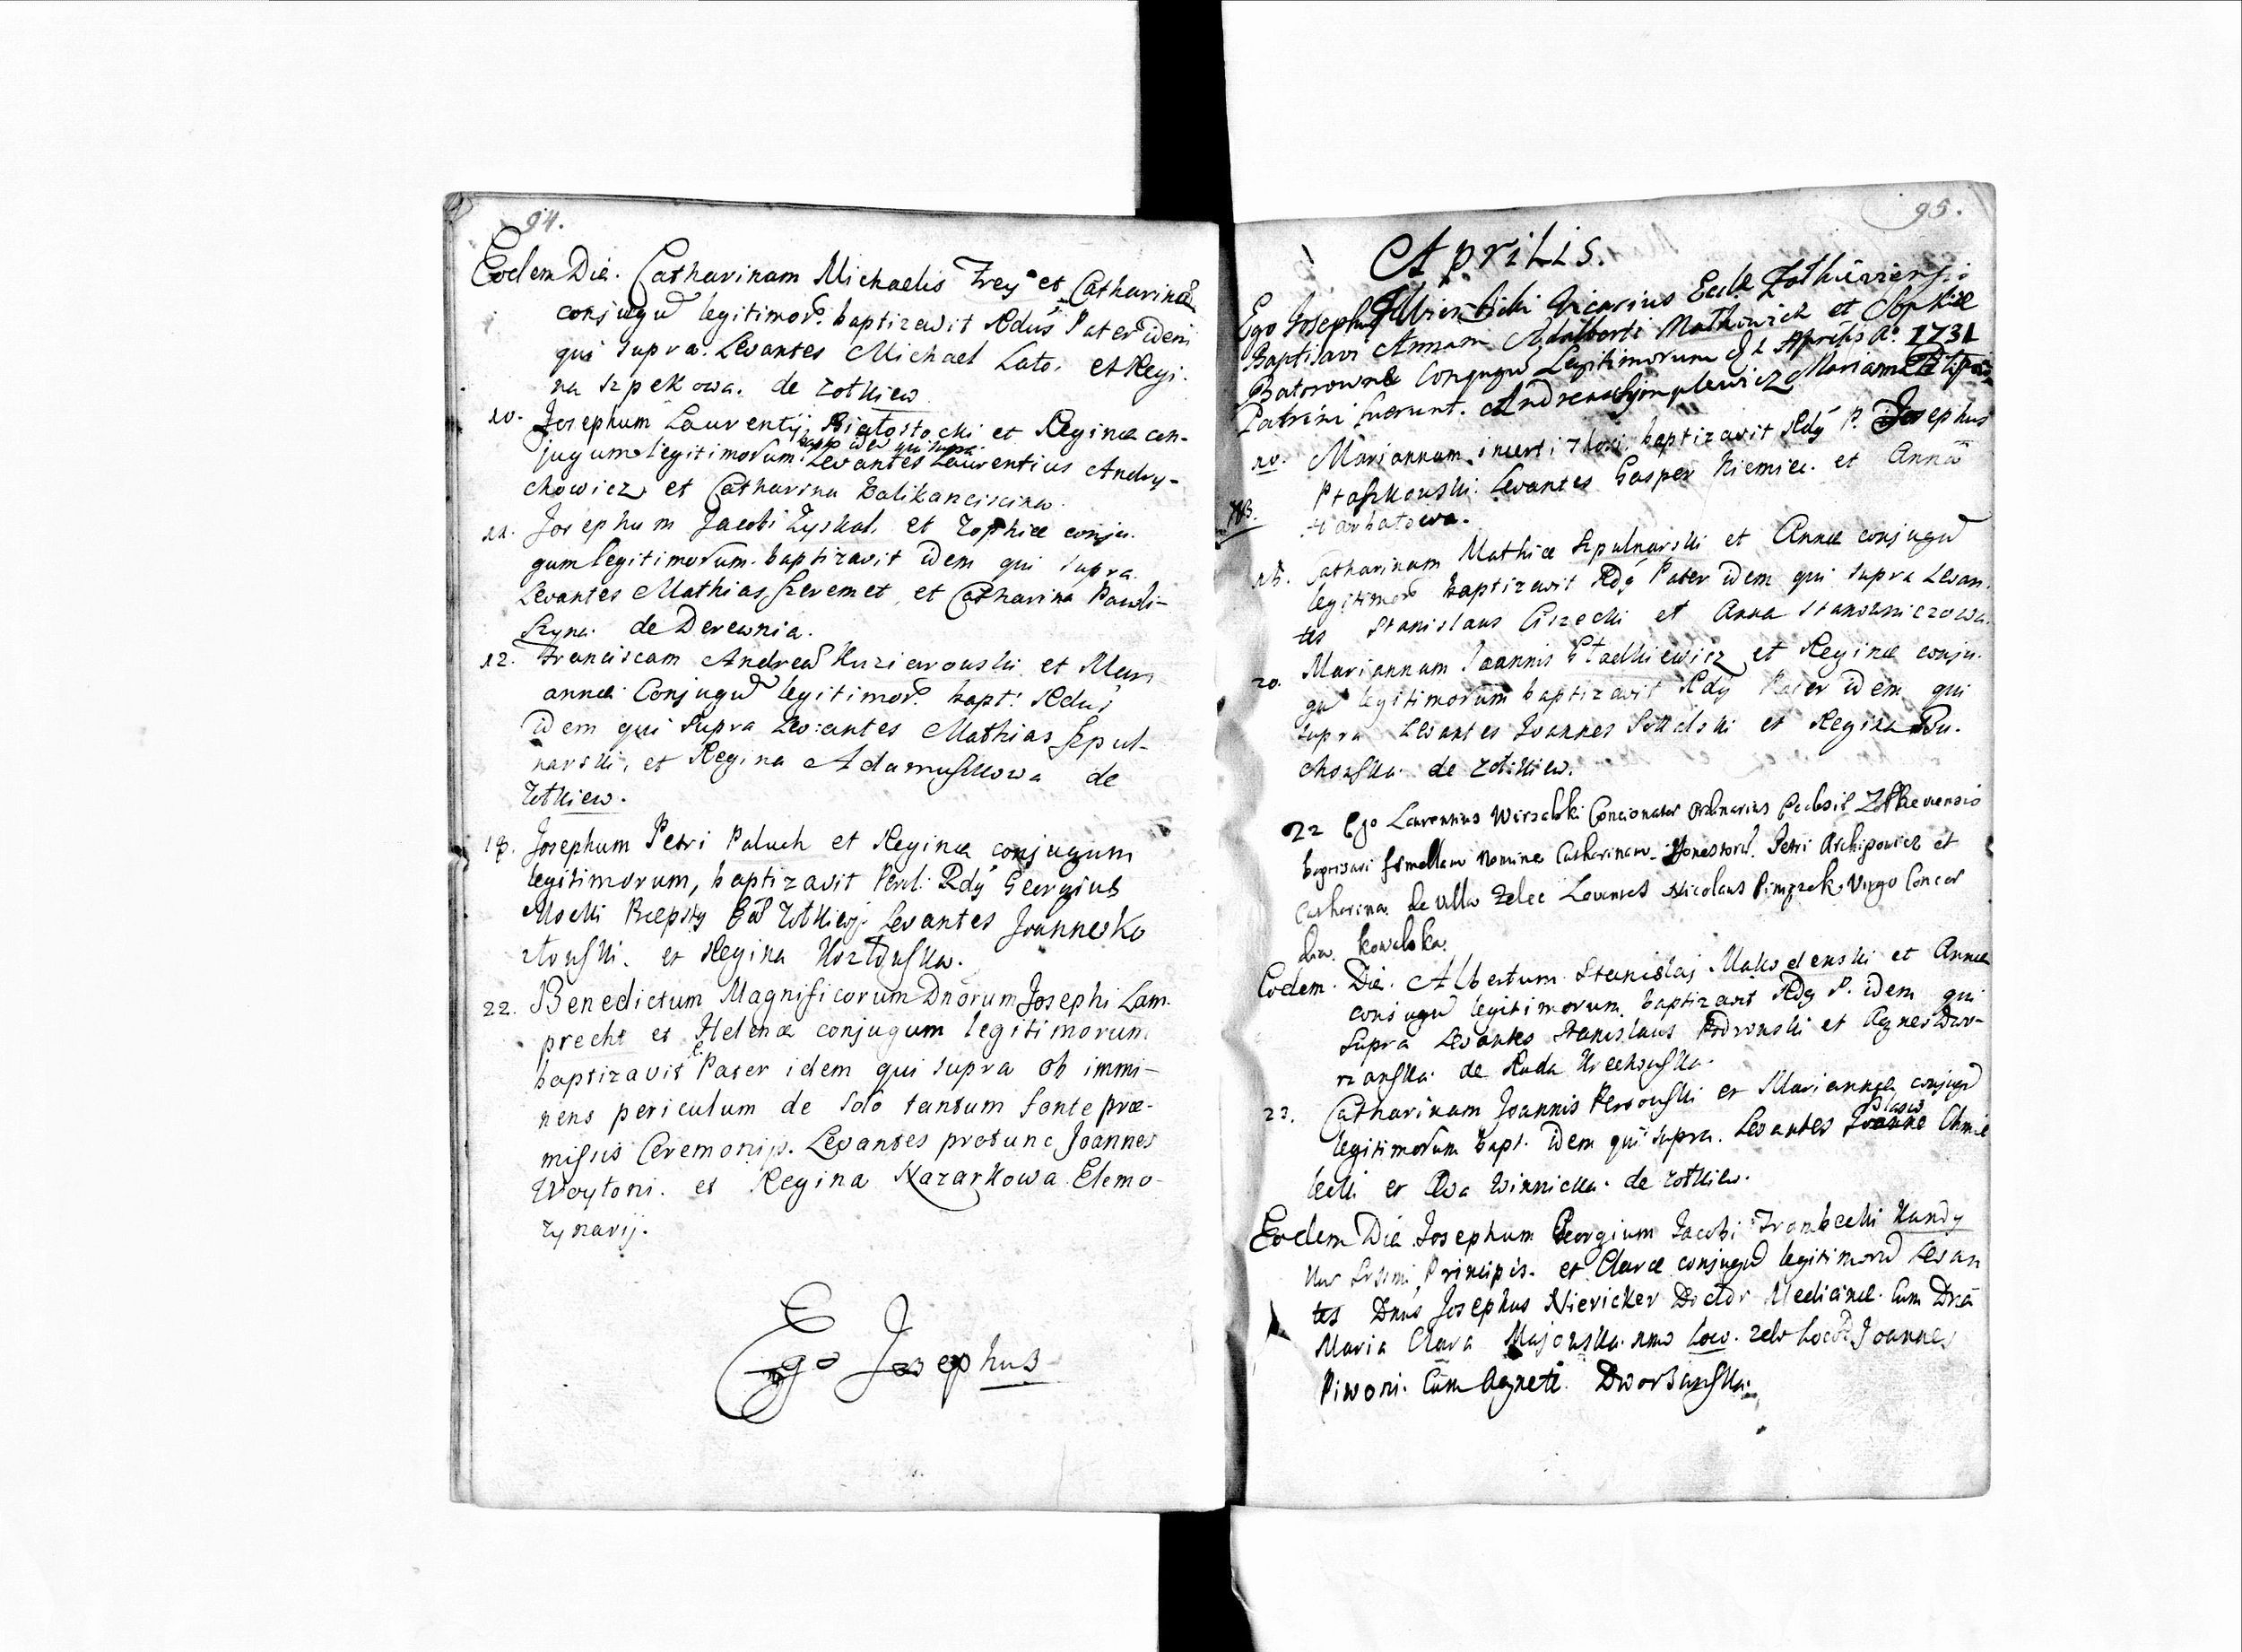 94.
Eodem Die. Catharinam Michaelis Frey et Catharinæ
conjugū legitimor. baptizavit Rdus Pater idem
qui supra. Levantes Michael Lato. et Regi-
na Szpekowa. de Zołkiew.
10. Josephum Laurentij Białostocki et Reginæ con-
bapt. idem qui supra.
jugum legitimorum. Levantes Laurentius Andry-
chowicz et Catharina
11. Josephum Jacobi Zyskal. et Zophiæ conju-
gum legitimorum. baptizavit idem qui supra.
Levantes Mathias Szeremet, et Catharina Pawli-
szyna. de Derewnia.
12. Franciscam Andreæ Kuziarowski et Mari
annæ Conjugū legitimor. bapt: Rdus
idem qui supra Levantes Mathias Szpul-
narski, et Regina Adamuszkowa de
Zołkiew.
18. Josephum Petri Paluch et Reginæ conjugum
legitimorum, baptizavit Rdg Georgius
Mocki Zołkiew. Levantes Joannes Ko
złowski. et Regina Kozłowska.
22. Benedictum Magnificorum Dnorum Josephi Lam-
precht et Helenæ conjugum legitimorum
baptizavit Pater idem qui supra ob immi-
nens periculum de solo tantum fonte præ-
missis Ceremonijs. Levantes protunc Joannes
Woytoni. et Regina Nazarkowa Elemo-
zynarij.
Ego Josephus
95.
Aprilis.
Ego Josephus Vicarius Eccle Zołkieviensis
Baptisavi Annam Adalberti Matkowich et Sophiæ
Batorownæ Conjugū Legitimorum Aprilis Aº. 1731
Patrini fuerunt. Andreas Marianna
10. Mariannam incerti thori. baptizavit Rdg P. Josephus
Ptaszkowski. Levantes Gasper Niemiec. et Anna
NB. Harbatowa.
15. Catharinam Mathiæ Szpulnarski et Annæ conjugū
legitimor baptizavit Rdg Pater idem qui supra Levan-
tes Stanislaus Ciszecki et Anna Stanowniczowa.
20. Mariannam Joannis Stadkiewicz et Reginæ conju-
gū legitimorum baptizavit Rdg Pater idem qui
supra Levantes Joannes et Regina Bu-
chowska. de Zołkiew.
22 Ego Laurentius Wirzbski Concionator Ordinarius Zołkieviensis
baptisavi femellam Nomine Catharinam. Petri Archipowicz et
Catharina. de Villa Zelec Levantes Nicolaus Pimzzek Virgo Concor
dia. Kowalska.
Eodem. Die. Albertum Stanislaj et Annæ
conjugū legitimorum baptizavit Rdg P. idem qui
supra Levantes Stanislaus et Agnes Dwo-
rzanska. de Ruda Krechowska.
23. Catharinam Joannis Persowski et Mariannæ conjugū
legitimorum bapt. idem qui supra. Levantes Chmie
lecki et Eva Winnicka. de Zołkiew.
Eodem Die Josephum Georgium Jacobi Trombecki
Principis. et Claræ conjugū legitimorū Levan
tes Dnus Josephus Nievicker Doctor Medicinæ. Cum Dnā
Maria Clara Majewska. Joannes
Piwoni. Cum Agnete Dworzanska.